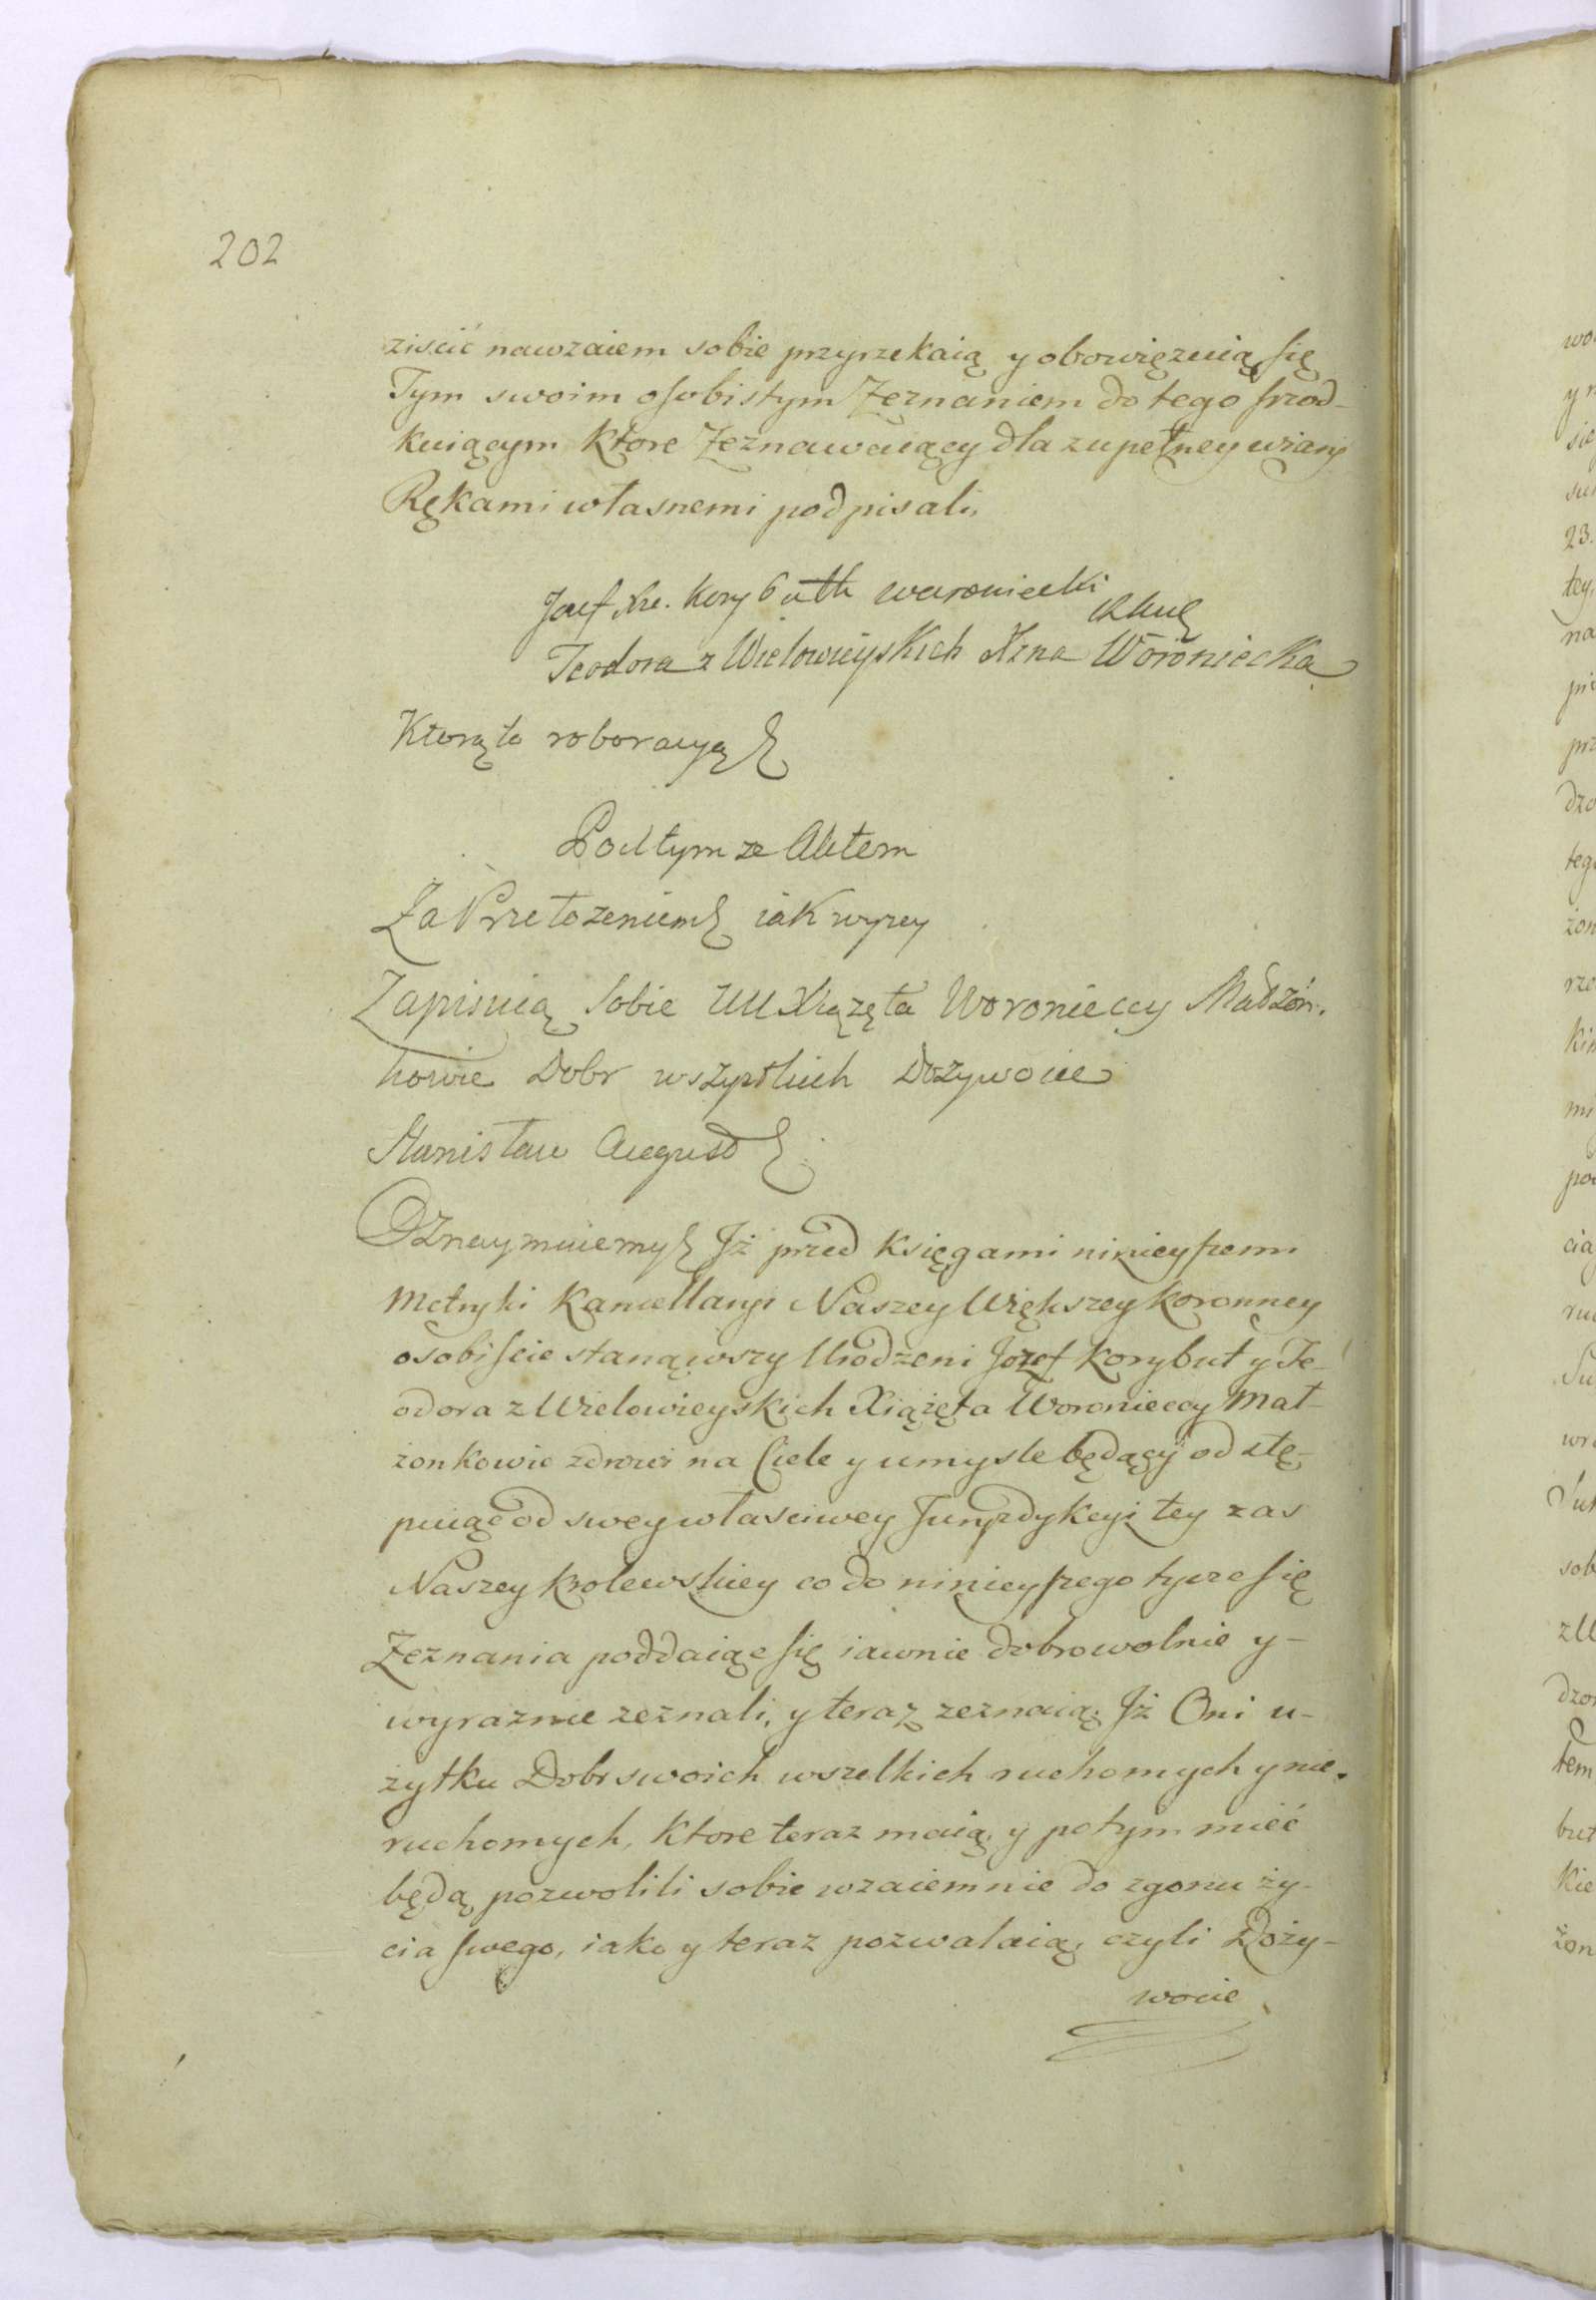 202
ziscić nawzaiem sobie przyrzekaią y obowięzuią się
Tym swoim osobistym Zeznaniem do tego srzod-
kuiącym które Zeznawaiący dla zupełney wiary
Rękami własnemi podpisali,
Jozef Xże. Korybuth woroniecki
Teodora z Wielowieyskich Xżna Woroniecka
Którą to roboracyą
Pod tym ze Aktem
Za Przełożeniem iak wyzey
Zapisuią Sobie UU Xiązęta Woronieccy Małżon-
kowie Dobr wszystkich Dozywocie
Stanisław August
Oznaymuiemy Iż przed Księgami ninieyszemi
Metryki Kancellaryi Naszey Większey Koronney
osobiscie stanąwszy Urodzeni Jozef Korybut y Te-
odora z Wielowieyskich Xiążęta Woronieccy Mał-
żonkowie zdrowi na Ciele y umysle będący odstę-
puiąc od swey własciwey Juryzdykcyi tey zas
Naszey Krolewskiey co do ninieyszego tycze się
Zeznania poddaiąc się iawnie dobrowolnie y-
wyraznie zeznali, y teraz zeznaią. Iż Oni u-
żytku Dobr swoich wszelkich ruchomych y nie-
ruchomych, które teraz maią, y potym mieć
będą pozwolili sobie wzaiemnie do zgonu ży-
cia swego, iako y teraz pozwalaią, czyli Doży-
wocie